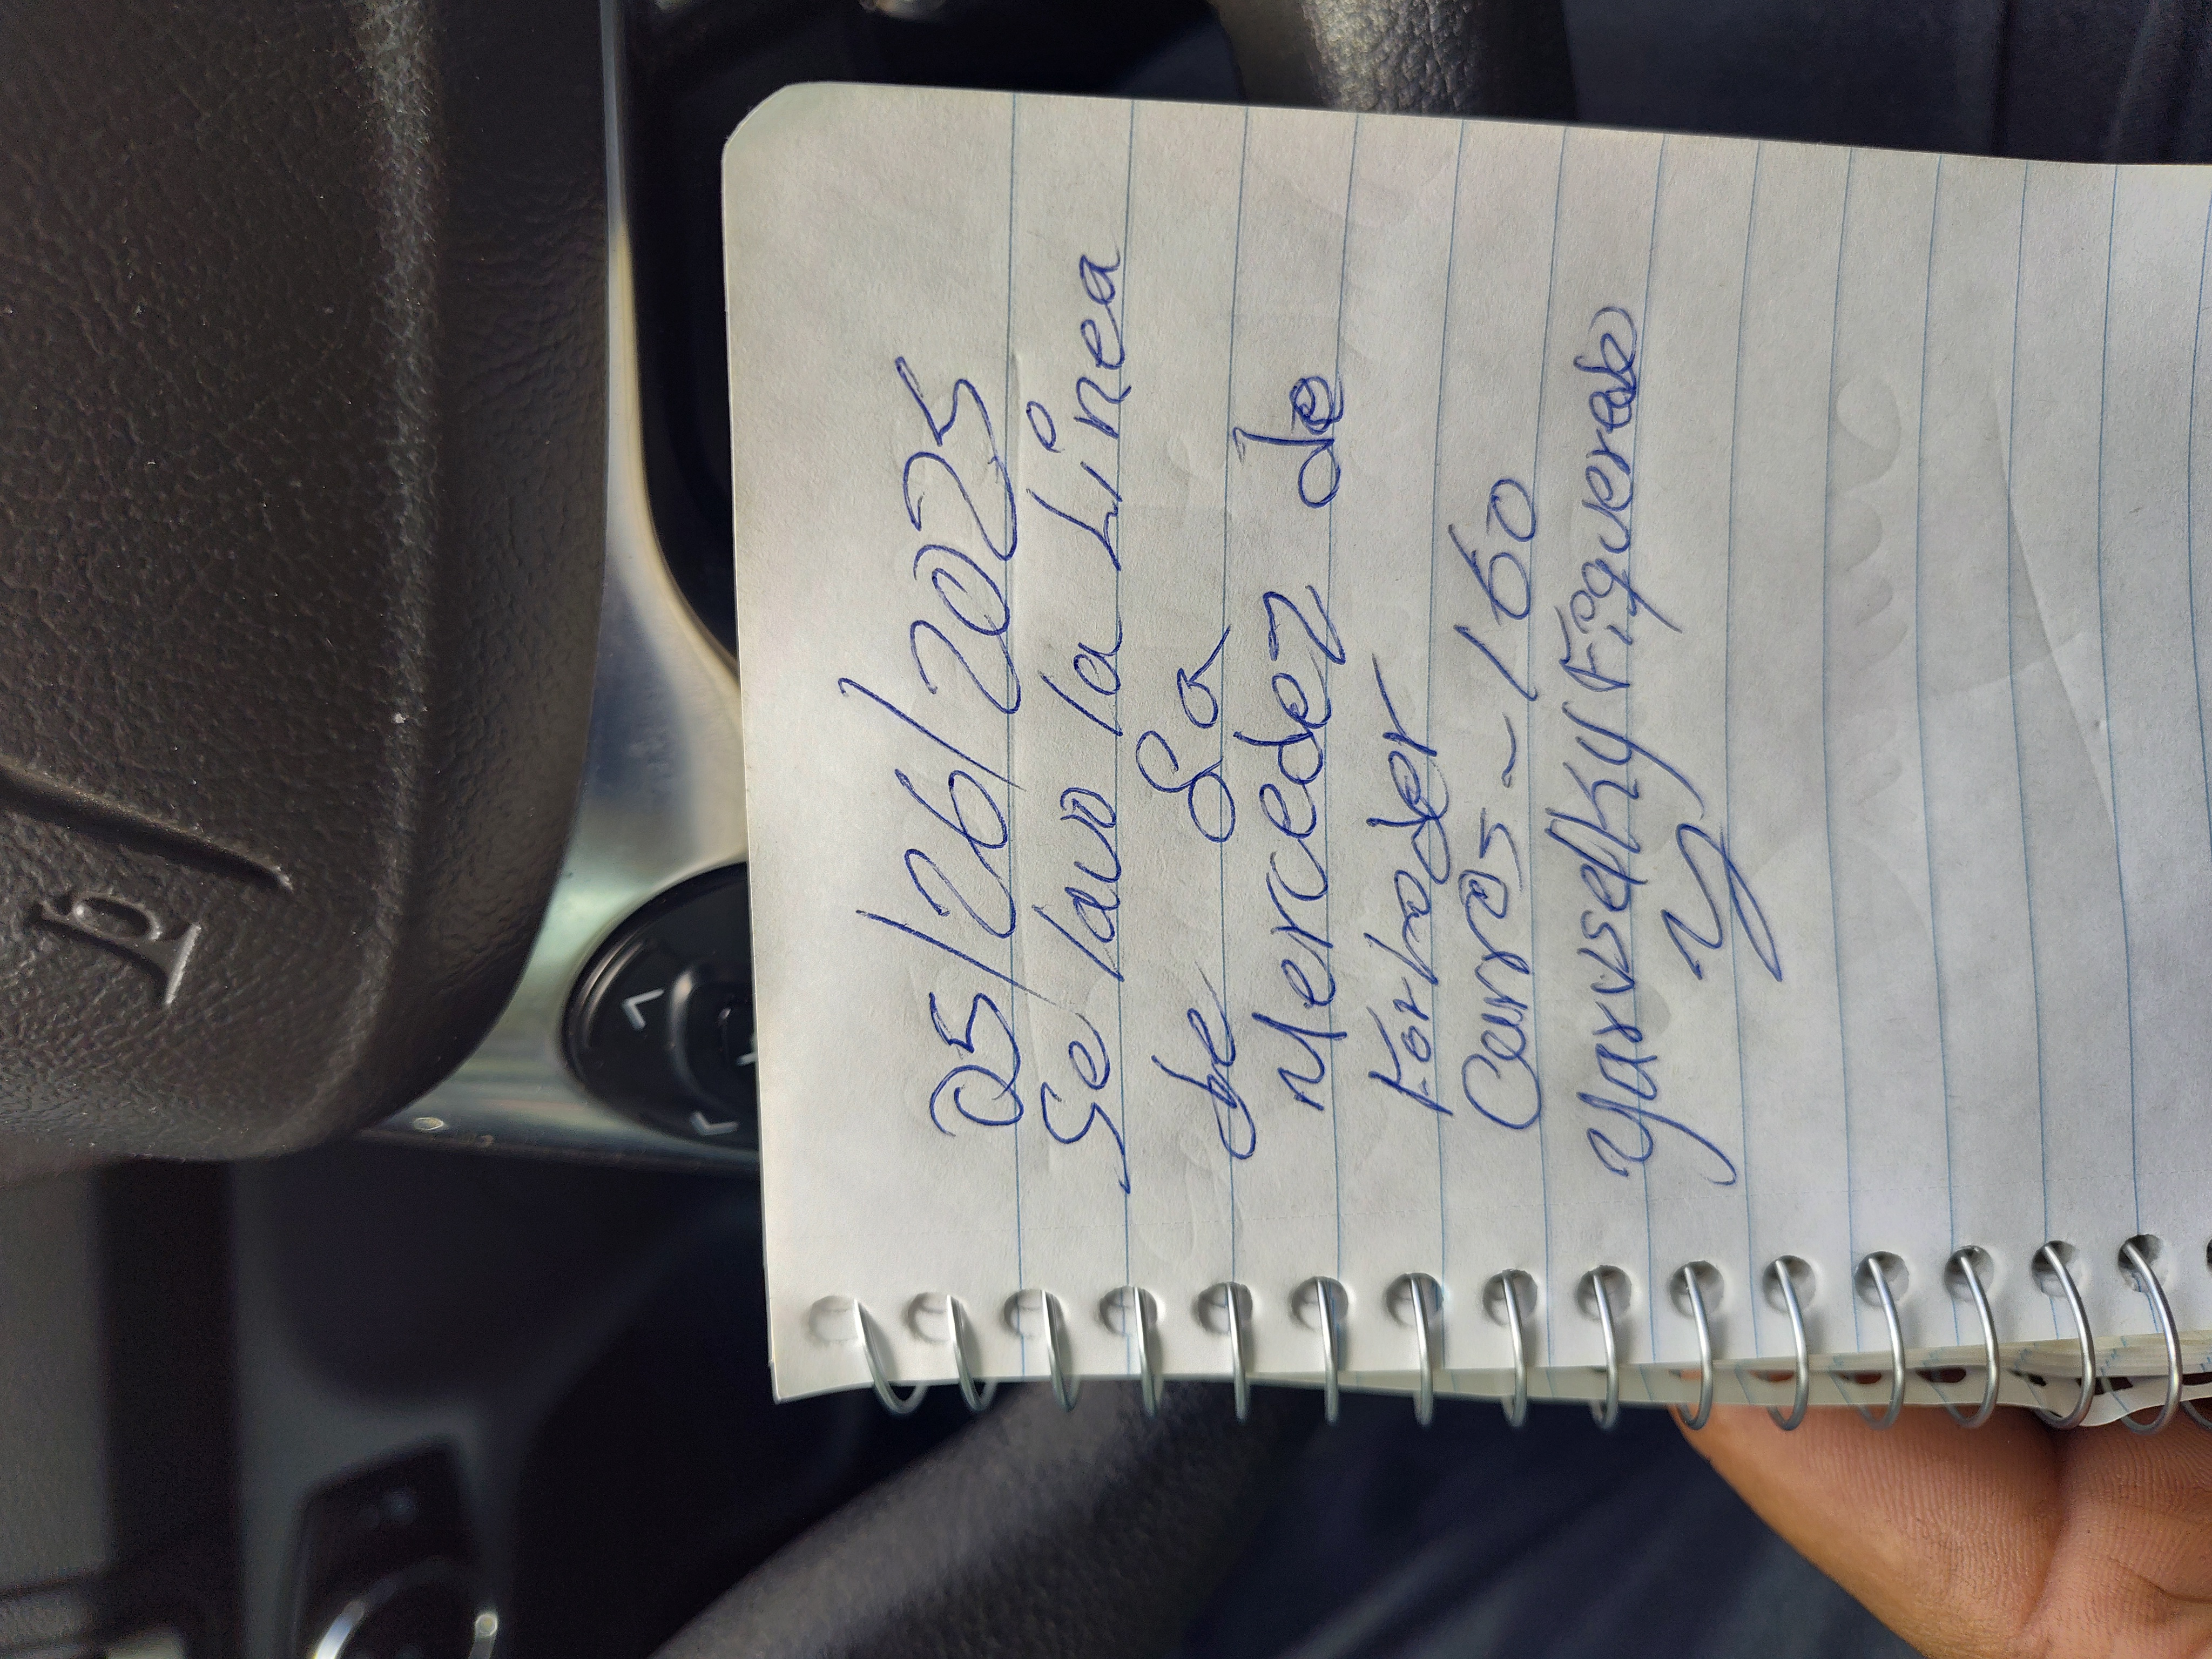 05/26/2025
Se lavo la Linea
de Sa
Mercedez de
Forhoder
Carros - 160
Yarvselky Figueredo